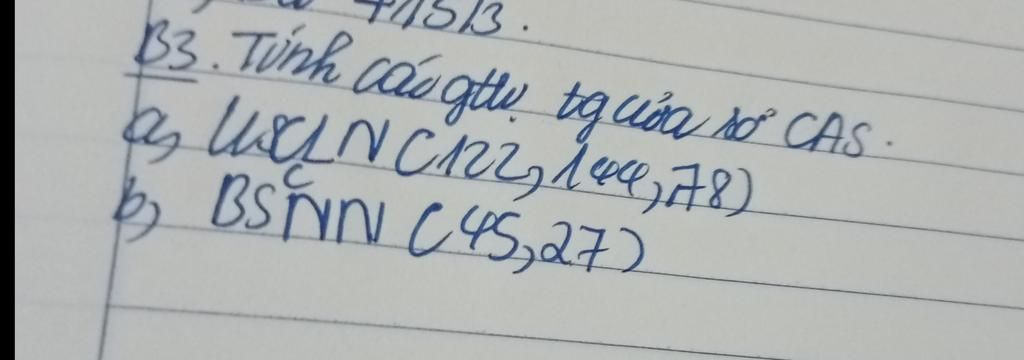 71513.
B3. Tính các gttư tg của số CAS.
a, ƯSCLN (122, 144, 78)
b, BSCNN (45, 27)